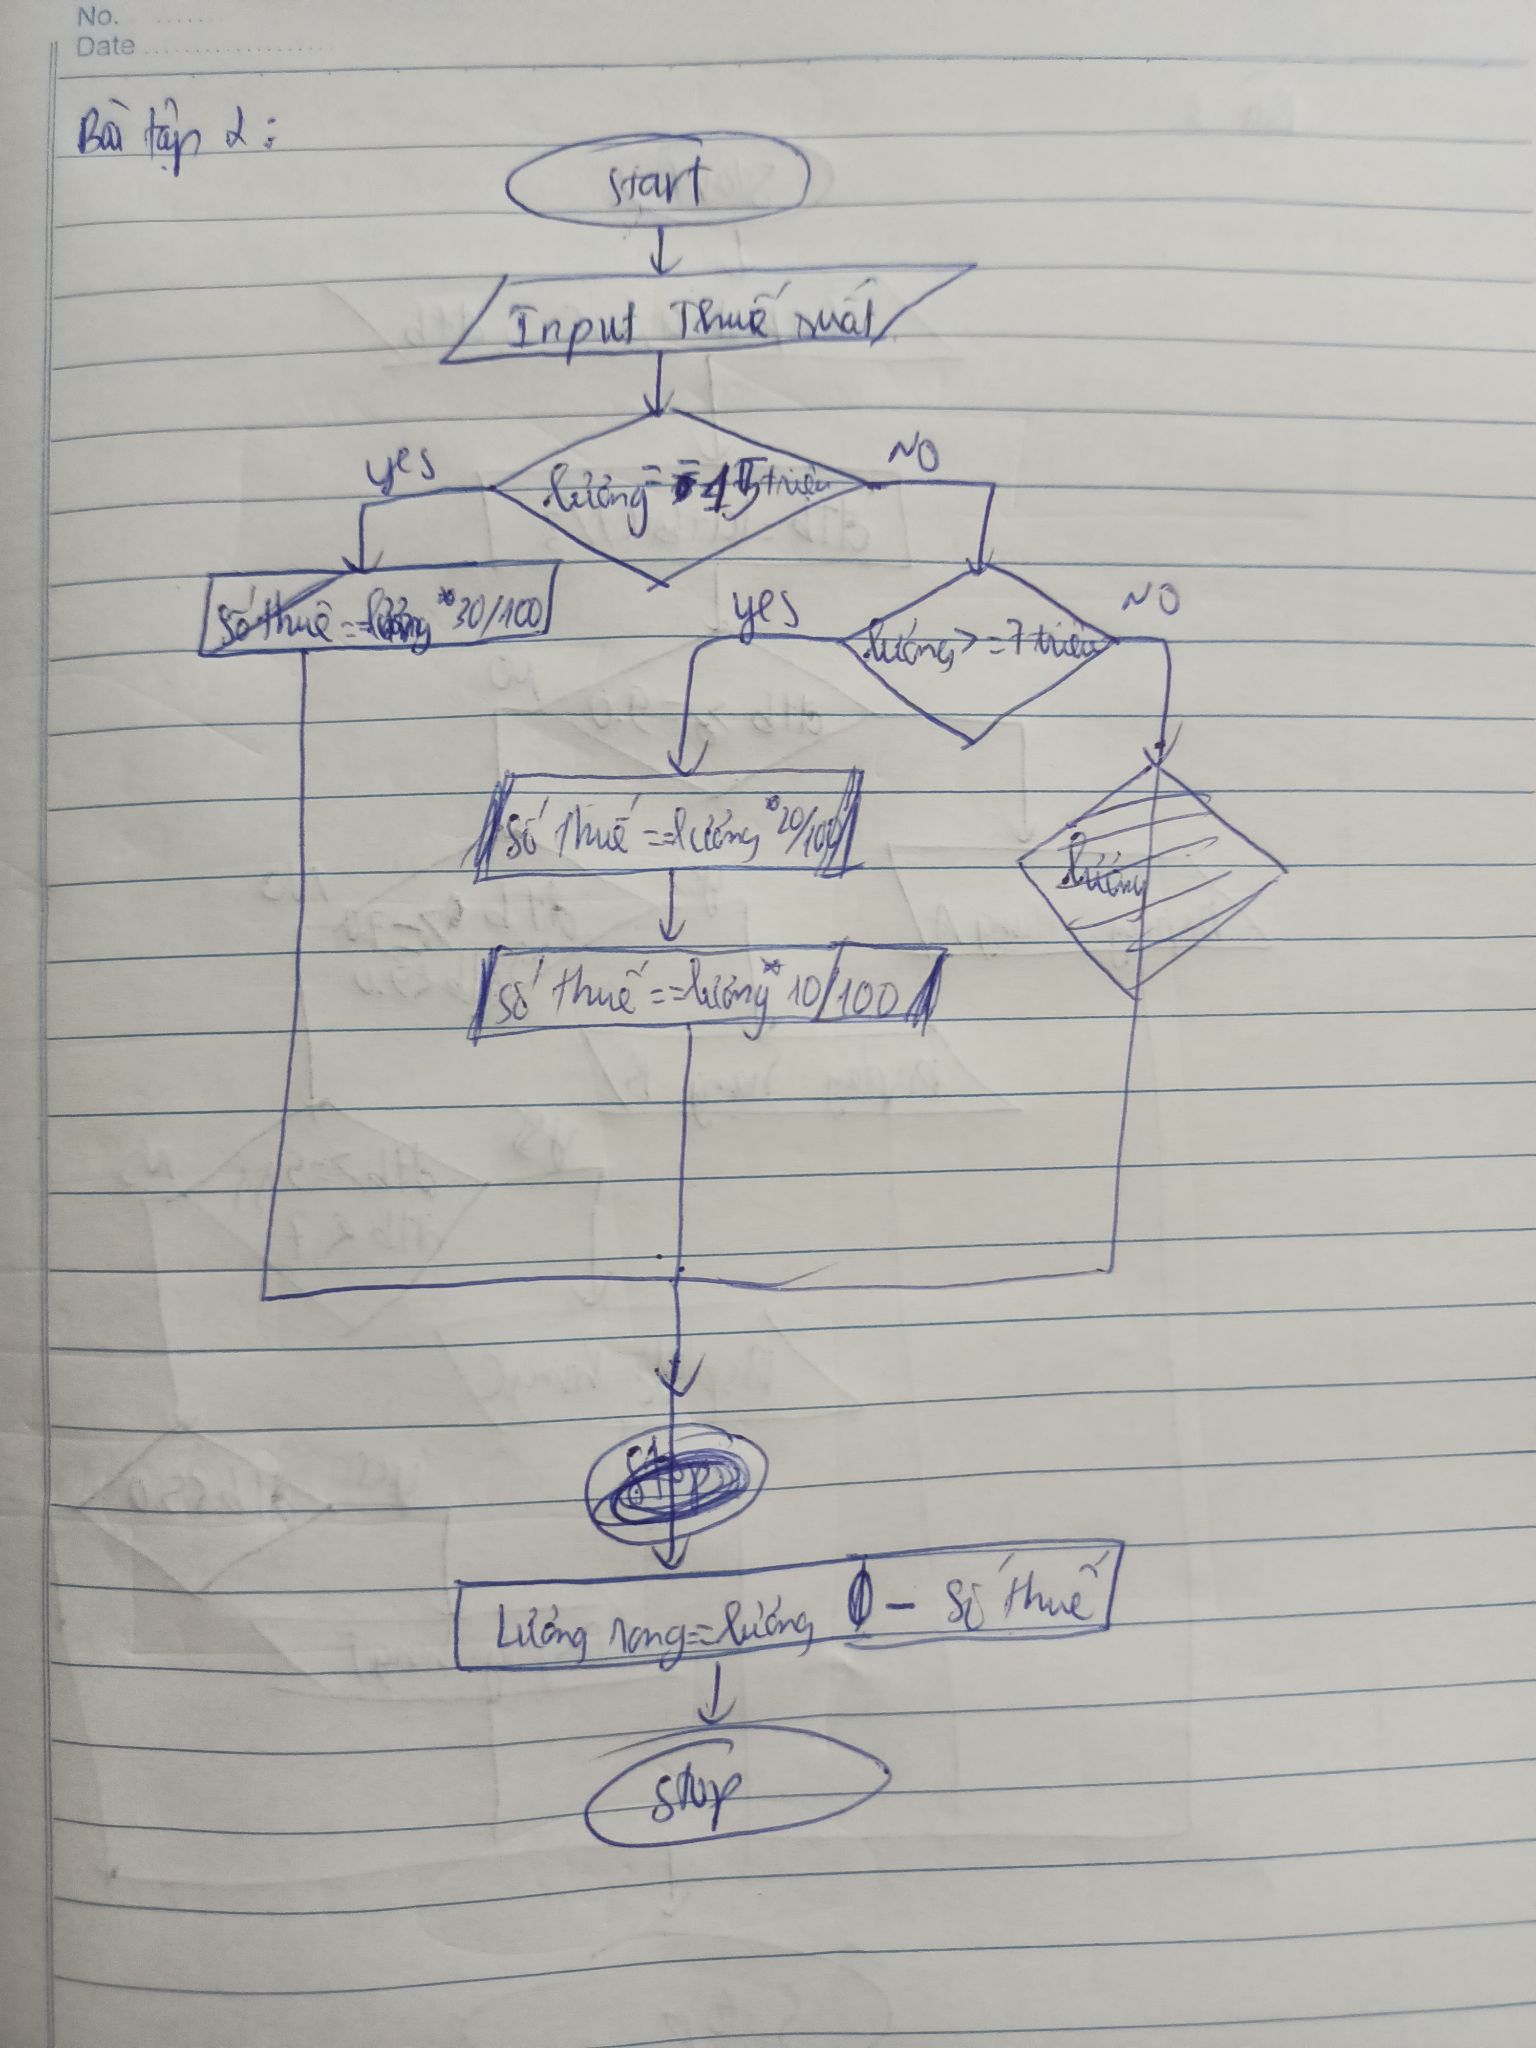 No.
Date
Bài tập 2:
start
Input Thuế suất
yes
NO
lương = 15 triệu
Số thuế == lương * 30/100
yes
NO
lương > = 7 triệu
Số thuế == lương * 20/100
lương
Số thuế == lương * 10/100
Stop
Lương ròng == lương - Số thuế
stop